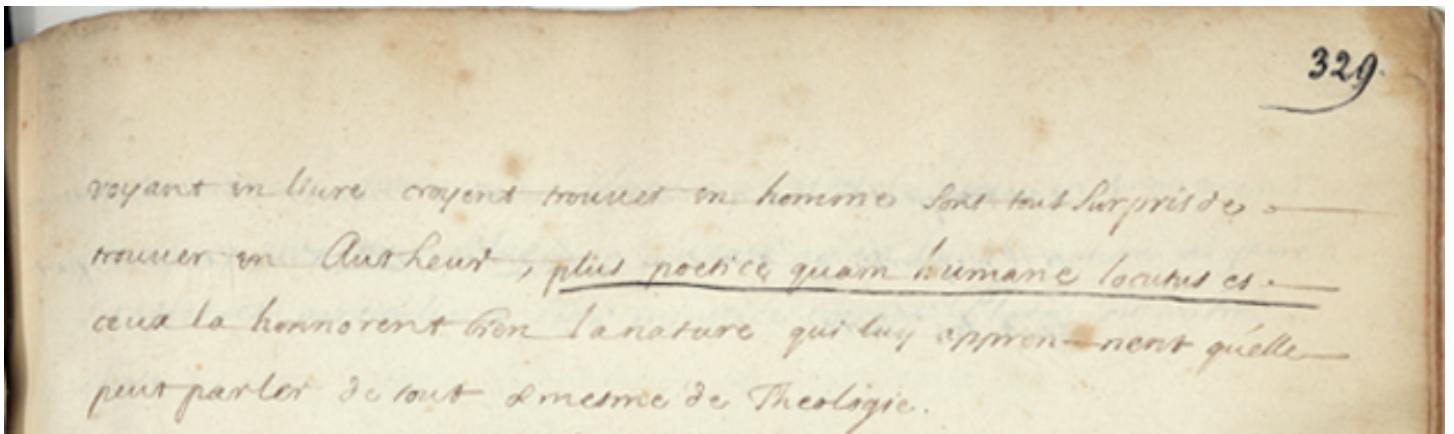 329.
voyant un liure croyent trouuer un homme sont tout surpris de
trouuer un Autheur, plus poetice quam humane locutus es.
ceux la honnorent bien la nature qui luy appren-nent qu'elle
peut parler de tout & mesme de Theologie.